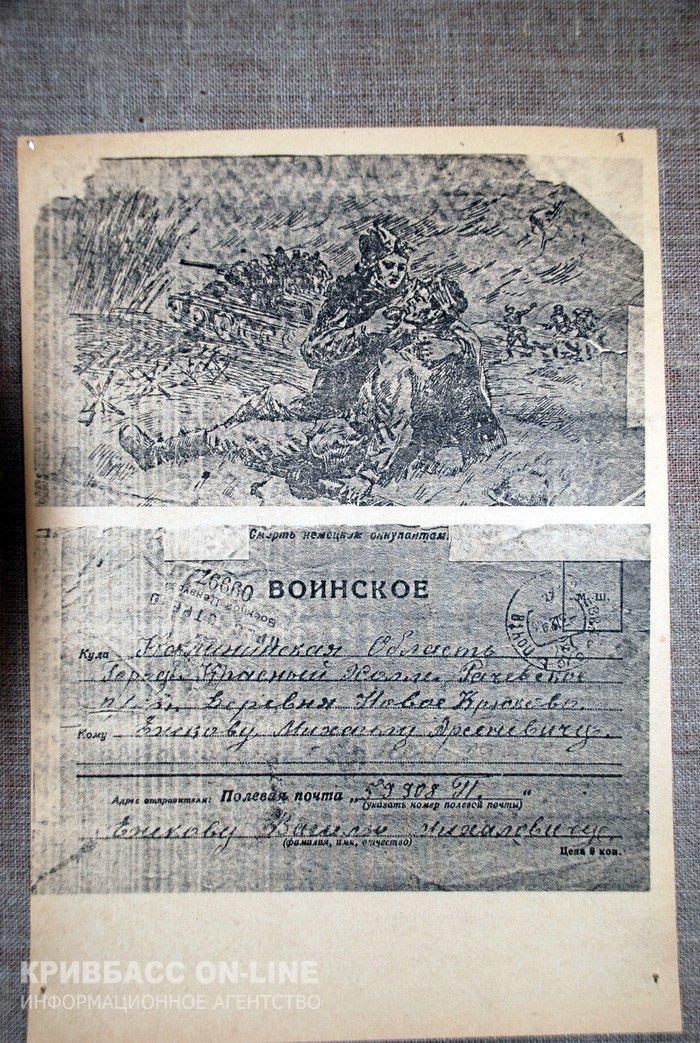 Смерть немецким оккупантам.
09997
Военной Цензурой
ВОИНСКОЕ
ПОЧТА
Куда Калининская Область
город Красный Холм.
деревня Новое Крюково.
Кому Ежкову Михаилу Арсеньевичу.
Адрес отправителя: Полевая почта „59908 П."
(указать номер полевой почты)
Ежкову Михаловичу
(фамилия, имя, отчество)
Цена 6 коп.
КРИВБАСС ON-LINE
ИНФОРМАЦИОННОЕ АГЕНТСТВО